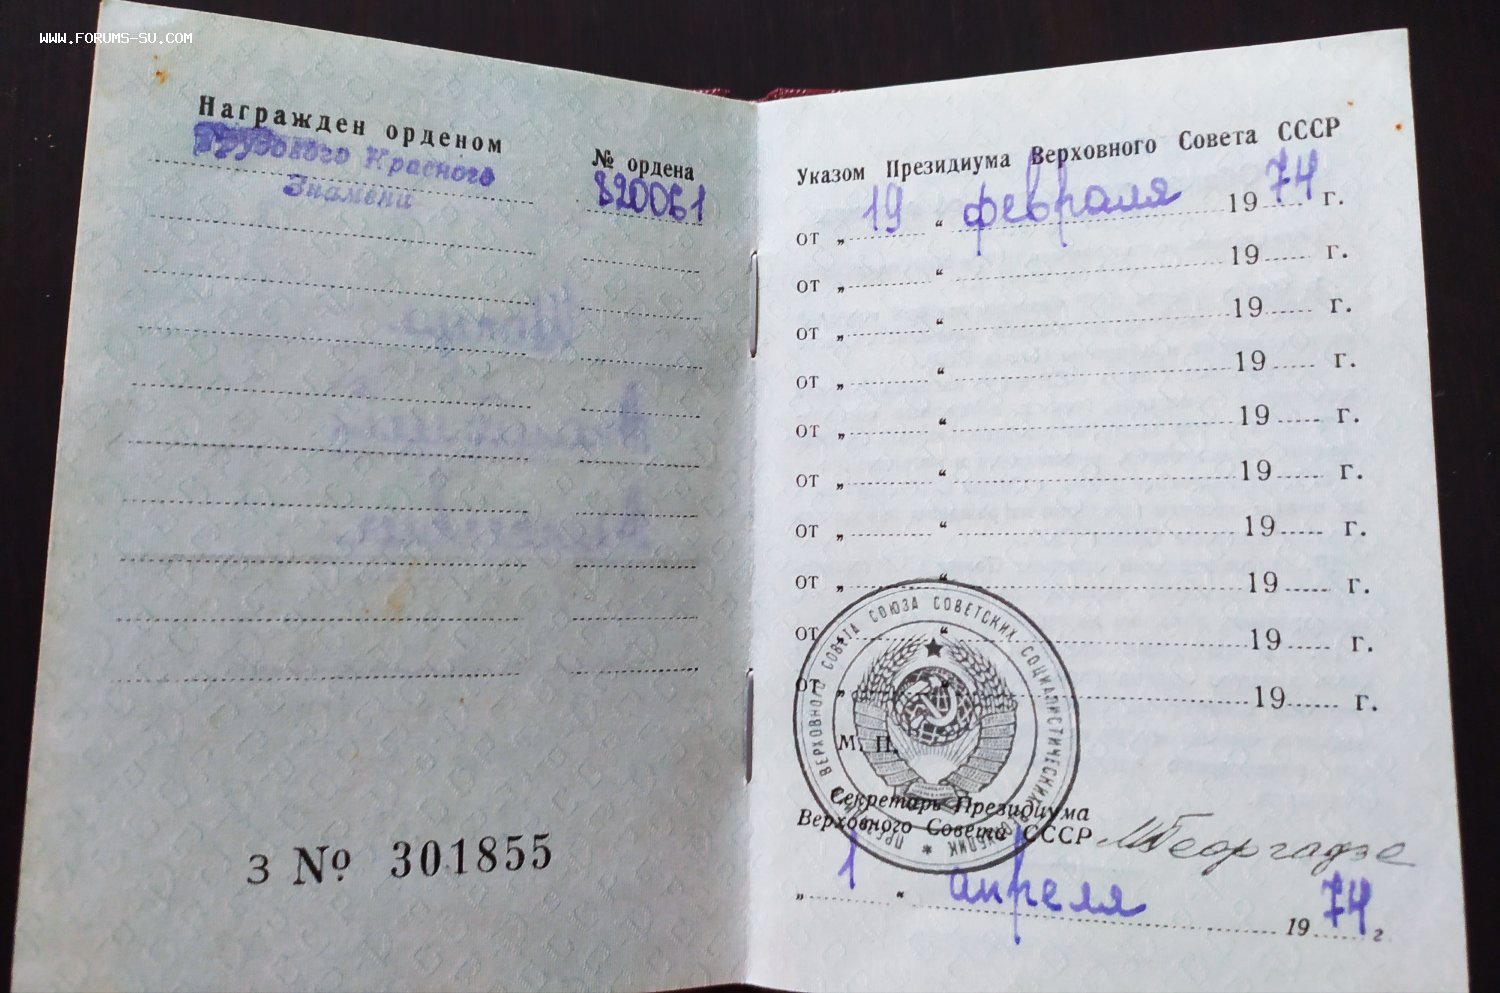 WWW.FORUMS-SU.COM
Награжден орденом
№ ордена
Трудового Красного
Знамени
820061
З № 301855
Указом Президиума Верховного Совета СССР
от „ 19 “ февраля 19 74 г.
от „ “ 19 г.
от „ “ 19 г.
от „ “ 19 г.
от „ “ 19 г.
от „ “ 19 г.
от „ “ 19 г.
от „ “ 19 г.
от „ “ 19 г.
от „ “ 19 г.
ВЕРХОВНОГО СОВЕТА СОЮЗА СОВЕТСКИХ СОЦИАЛИСТИЧЕСКИХ
М. П.
Секретарь Президиума
Верховного Совета СССР МГеоргадзе
„ 1 “ апреля 19 74 г